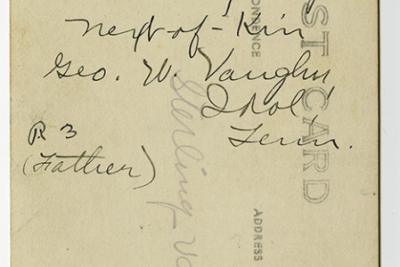 next-of-Kin
Geo. W. Vaughn
Idol
Tenn.
R 3
(Father)
Sterling Va
ST CARD
ONDENCE
ADDRESS